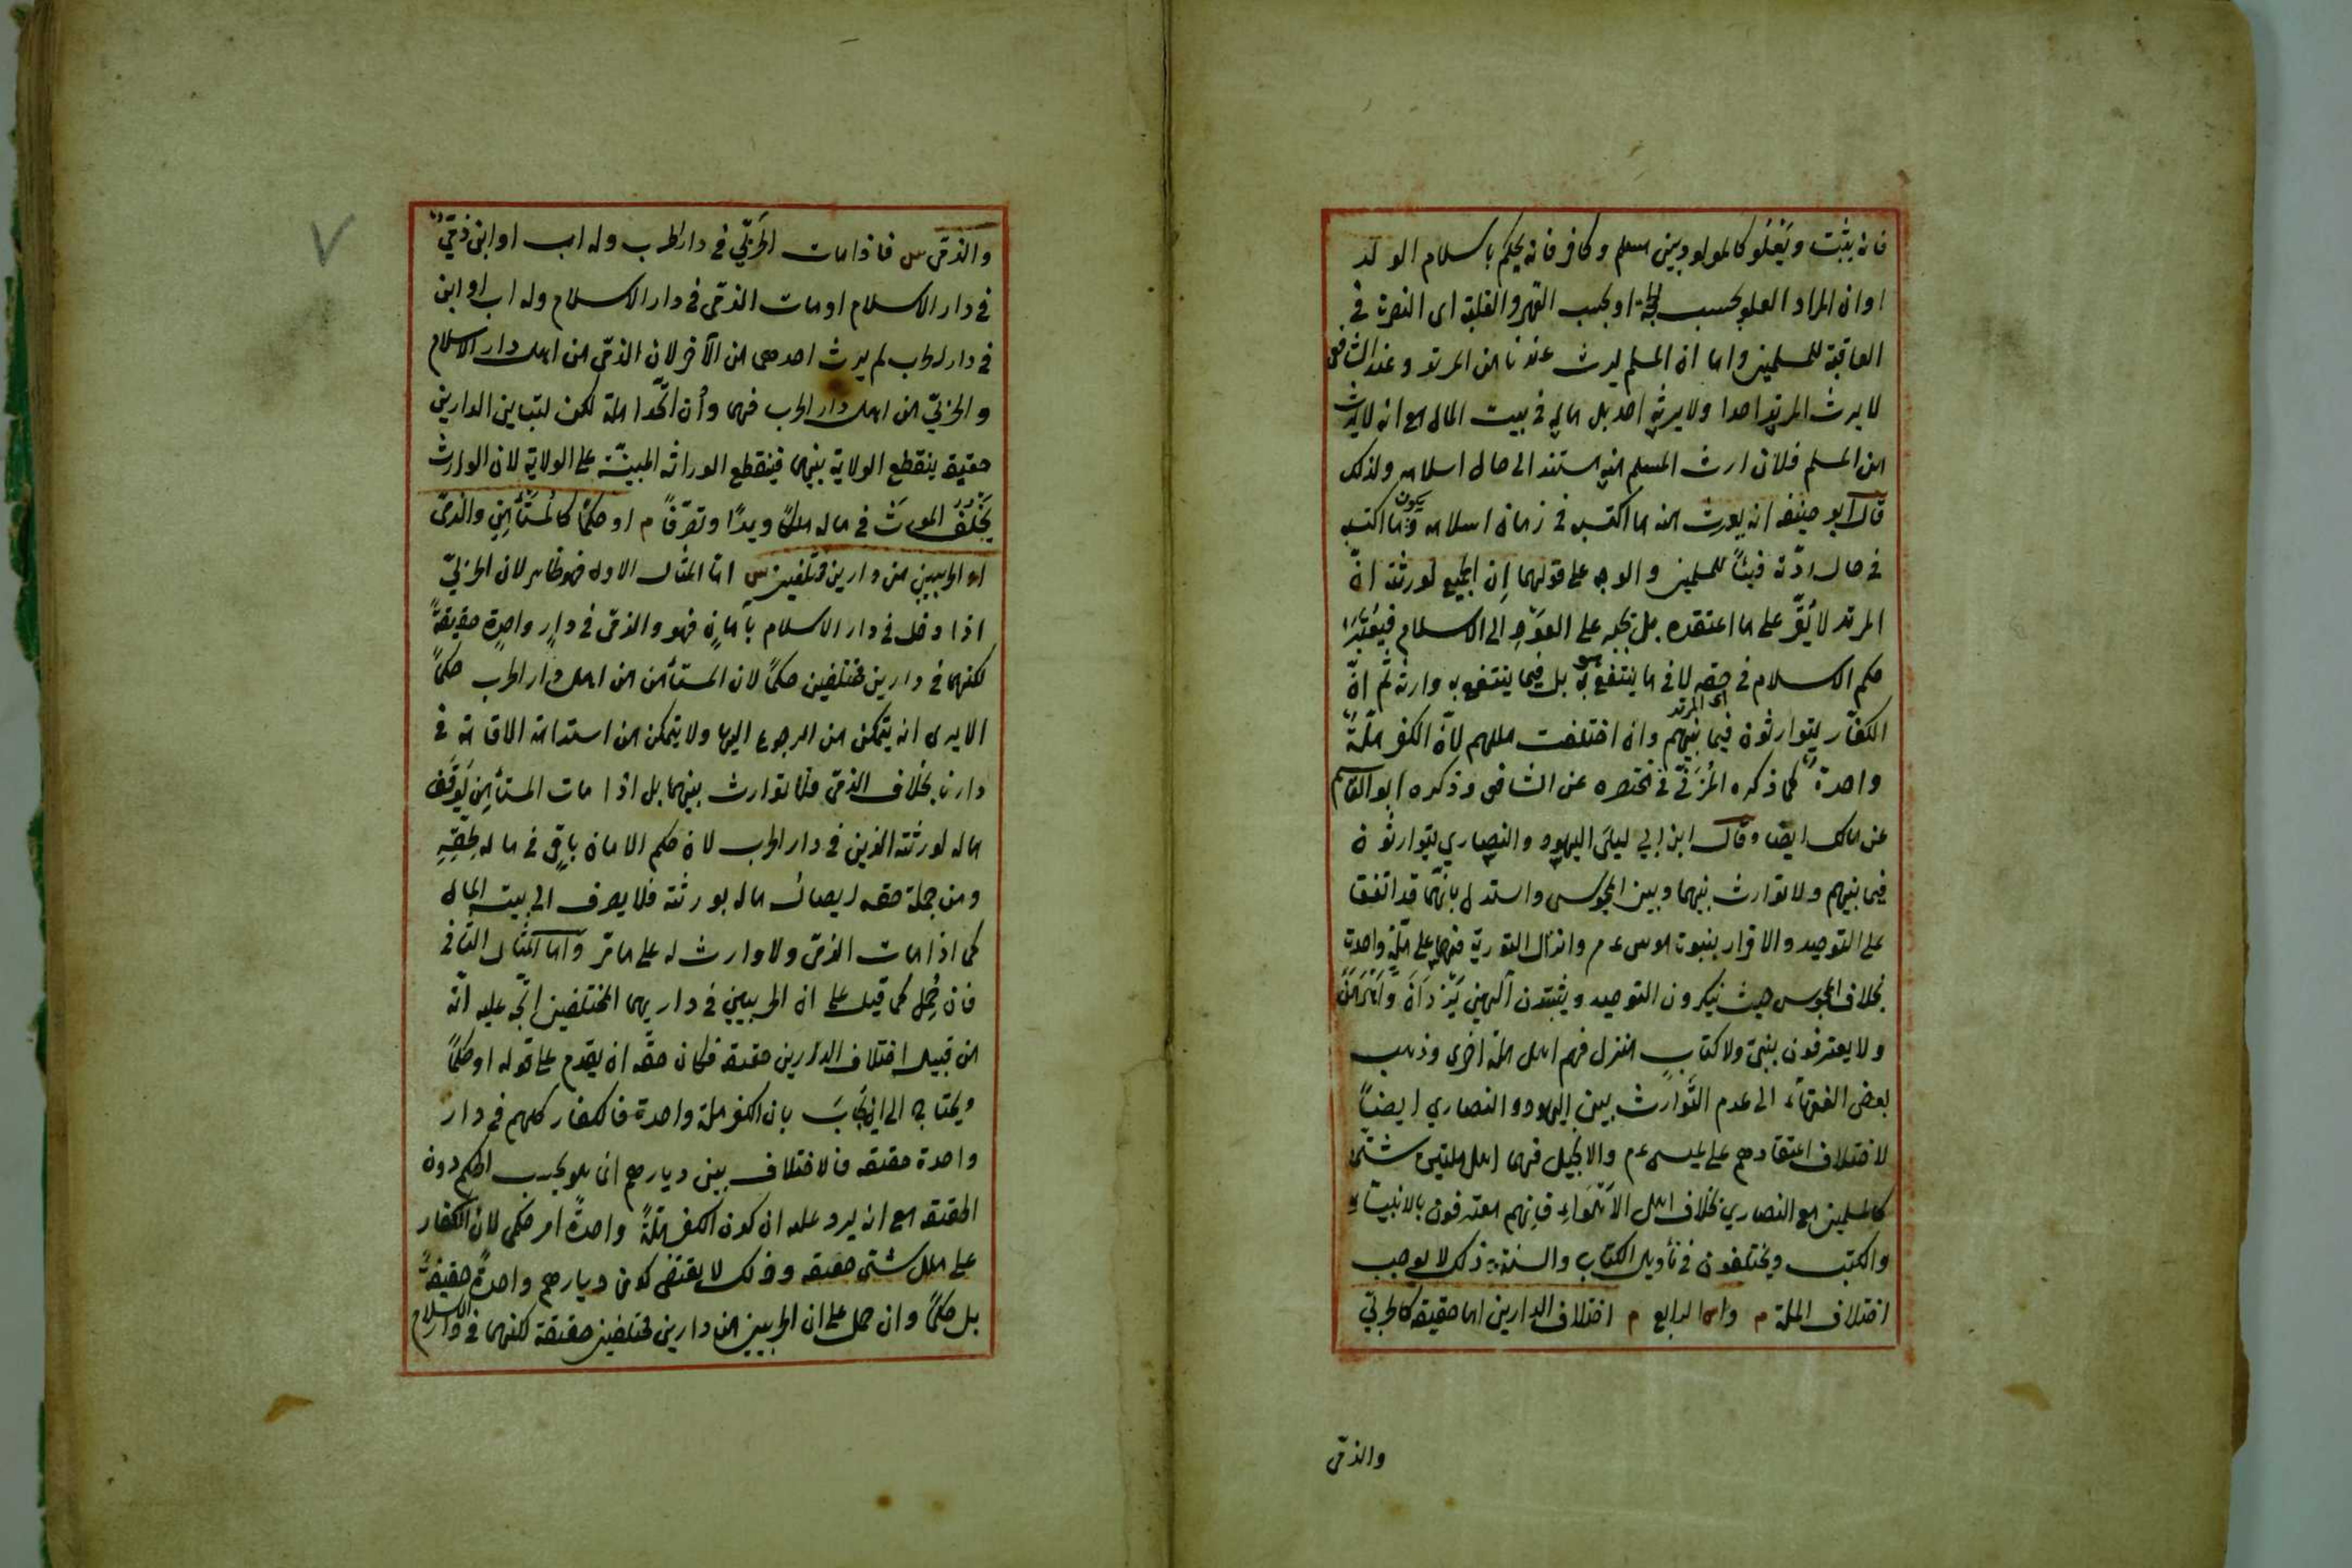 فانه يثبت ويَعْلُو كالمولود بين مسلم وكافر فانه يحكم باسلام الولد
او ان المراد العلو بحسب الحجة او بحسب القهر والغلبة اى النصرة فى
العاقبة للمسلمين واما ان المسلم يرث عندنا من المرتد وعند الشافعى
لا يرث المرتد احدا ولا يرثه احد بل ماله فى بيت المال مع انه لا يرث
من المسلم فلان ارث المسلم منه مستند الى حال اسلامه ولذلك
قال ابو حنيفه انه يورث منه ما اكتسب فى زمان اسلامه ويكون ما اكتسبه
فى حال ردّته فيئاً للمسلمين والوجه على قولهما اِن الجميع لورثته انّ
المرتد لا يُقَرّ على ما اعتقده بل يجبر على العَوْدِ الى الاسلام فيُعْتَبَرُ
حكم الاسلام فى حقه لا فى ما ينتفع هو به بل فيما ينتفع به وارثه ثم انّ
اى المرتد
الكفّار يتوارثون فيما بينهم وان اختلفت مللهم لانّ الكفر ملّةٌ
واحدةٌ كما ذكره المُزَنىّ فى مختصره عن الشافعى وذكره ابو القاسم
عن مالك ايضا وقال ابن ابي ليلى اليهود والنصاري يتوارثون
فيما بينهم ولا توارث بينهما وبين المجوس واستدل بانّهما قد اتفقا
على التوحيد والاقرار بنبوت موسى عم وانزال التورية فهما على ملّة واحدت
بخلاف المجوس حيث ينكرون التوحيد ويثبتون آلهين يَزْدَانَ وَاَهْرَمَنَ
ولا يعترفون بنبىّ ولا كتابٍ منزل فهم اهل ملة اخرى وذهب
بعض الفقهآء الى عدم التَّوارث بين اليهود والنصاري ايضاً
لاختلاف اعتقادهم على عيسى عم والانجيل فهما اهل ملتين شتّى
كالمسلمين مع النصاري بخلاف اهل الاَهْواءِ فاِنهم معترفون بالانبيآء
والكتب ويختلفون فى تأويل الكتاب والسنة وذلك لا يوجب
اختلاف الملة م واما الرابع م اختلاف الدارين اما حقيقة كالحربىّ
والذمّى
والذمّى س فاذا مات الحَربىّ فى دار الحرب وله اب او ابن ذمّىٌّ
فى دار الاسلام او مات الذمّى فى دار الاسلام وله اب او ابن
فى دار الحرب لم يرث احدهما من الآخر لان الذمّى من اهل دار الاسلام
والحربىّ من اهل دار الحرب فهما وأن اتّحدا ملة لكن لتباين الدارين
حقيقة ينقطع الولاية بينهما فينقطع الوراثه المبنيّة على الولاية لان الوارث
يَخْلُفُ المورث فى ماله ملكاً ويدًا وتصرّفاً م او حكمًا كالمستَأمِنِ والذمّى
او الحربيين من دارين مختلفين س امّا المثال الاول فهو ظاهر لان الحربىّ
اذا دخل فى دار الاسلام بأمانٍ فهو والذمّى فى دارٍ واحدةٍ حقيقةً
لكنهما فى دارين مختلفين حكماً لان المستأمن من اهل دار الحرب حكماً
الا يرى انه يتمكن من الرجوع اليها ولا يتمكن من استدامة الاقامة فى
دارنا بخلاف الذمّى فلا توارث بينهما بل اذا مات المستأمِن يُوقَف
ماله لورثته الذين فى دار الحرب لان حكم الامان باقٍ فى ماله لحقِّهِ
ومن جملة حقه ايصال ماله لورثته فلا يصرف الى بيت المال
كما اذا مات الذمّى ولا وارث له على ما مّر واما المثال الثّانى
فان حُمِل كما قيل على ان الحربيين فى داريهما المختلفين اتّجه عليه انّه
من قبيل اختلاف الدارين حقيقة فكان حقّه ان يقدم على قوله او حكماً
ويحتاج الى ان يُجَابَ بان الكفر ملة واحدة فالكفار كلهم فى دار
واحدة حقيقه فالاختلاف بين ديارهم انما هو بحسب الحكم دون
الحقيقه مع انه يرد عليه ان كون الكفر ملّةً واحدةً امر حكمى لان الكفار
على ملل شتى حقيقه وذلك لا يقتضى كون ديارهم واحدةً حقيقةً
بل حكماً وان حمل على ان الحربيين من دارين مختلفين حقيقة لكنهما فى دار الاسلام